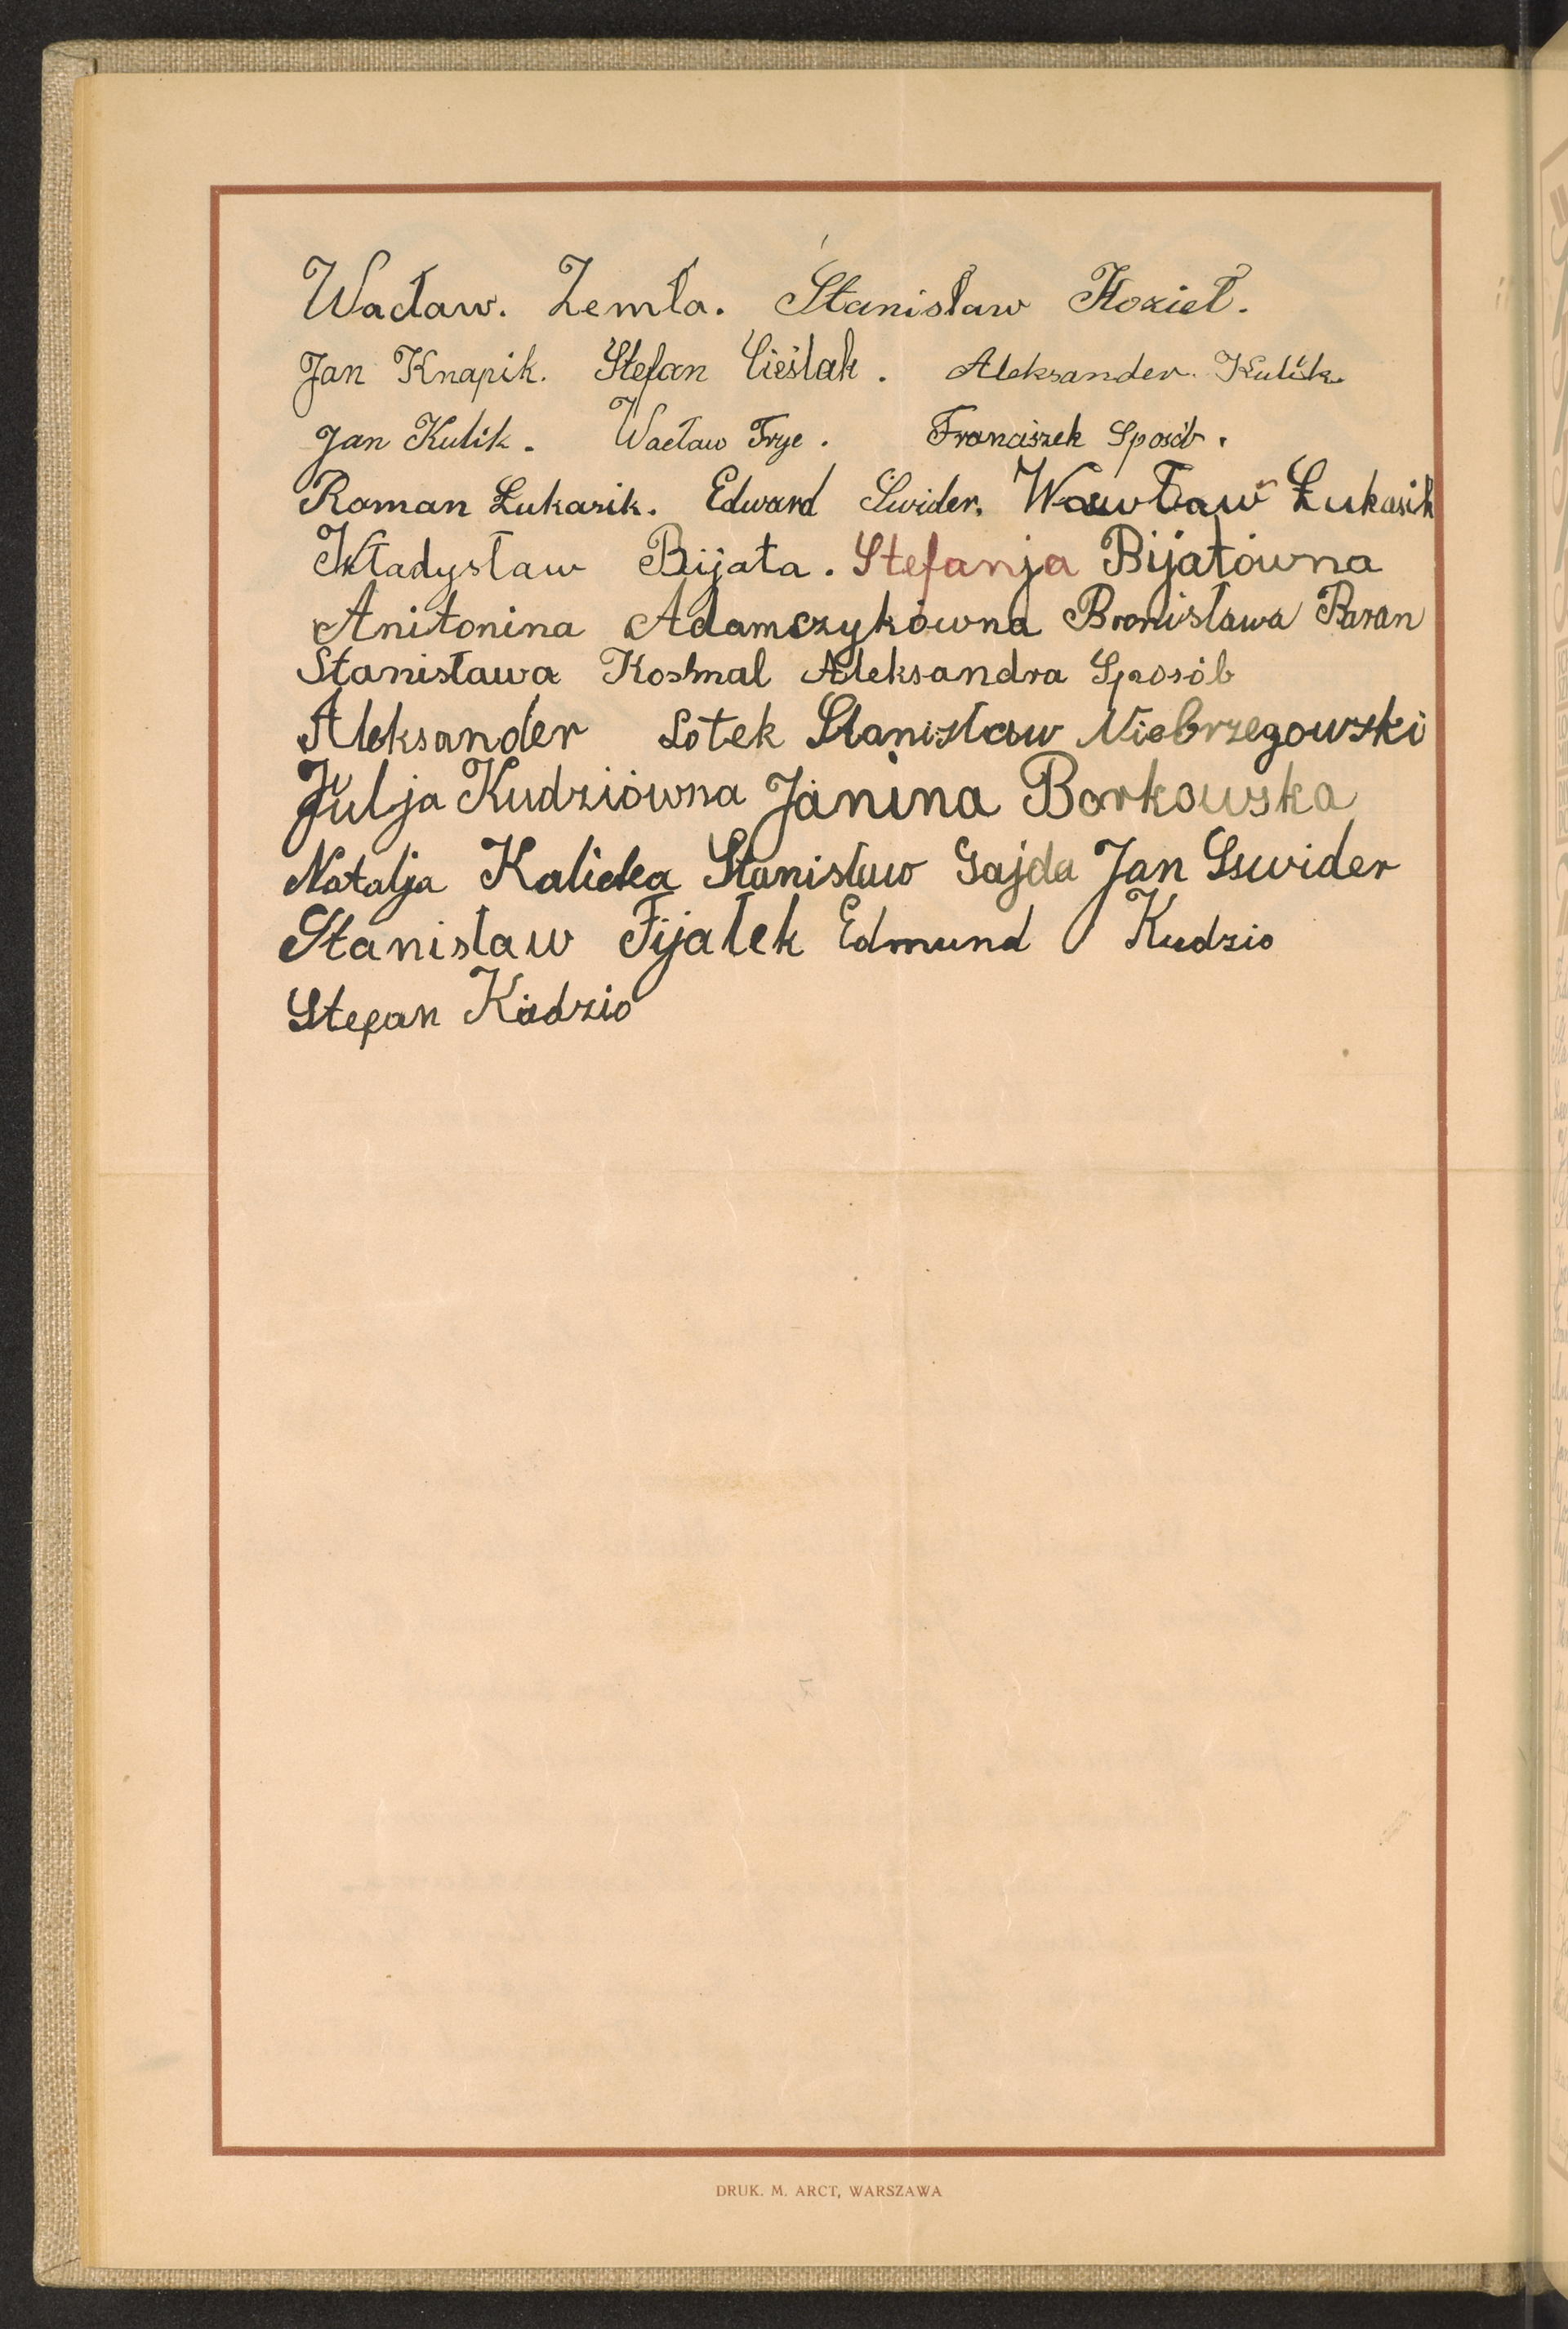 Wacław. Zemła. Stanisław Kozieł.
Jan Knapik. Stefan Cieślak. Aleksander Kulik.
Jan Kulik. Wacław Frye. Franciszek Sposób.
Roman Łukasik. Edward Świder. Wawław Łukasik
Władysław Bijata. Stefanja Bijatówna
Anitonina Adamczykówna Bronisława Baran
Stanisława Koshmal Aleksandra Sposób
Aleksander Łotek Stanisław Niebrzegowski
Julja Kudziówna Janina Borkowska
Natalja Kalicka Stanisław Gajda Jan Sswider
Stanisław Fijałek Edmund Kudzio
Stefan Kudzio
DRUK. M. ARCT, WARSZAWA